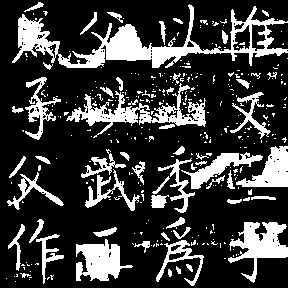 惟文王乎
以王季爲
父以武王
爲子父作